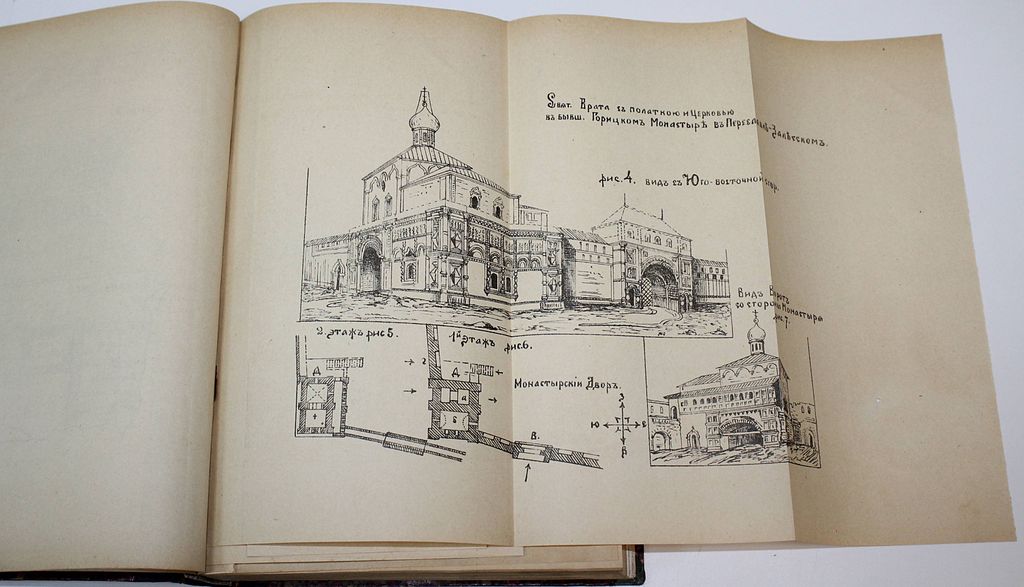 Свят. Врата съ полаткою и Церковью
въ бывш. Горицкомъ Монастырѣ въ Переславлѣ-Залѣсскомъ.
рис. 4. видъ съ Юго-восточной стор.
Видъ Вратъ
со стороны Монастыря
рис. 7.
2. этажъ рис 5.
1й этажъ рис. 6.
Монастырскій Дворъ.
Д
Д
2
а
т
Б
В.
З
Ю
С
В